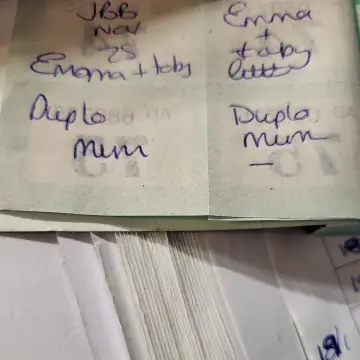 JBB
Nov
25
Emma + toby
Duplo
Mum
Emma
+
toby
Duplo
Mum
–
18/1